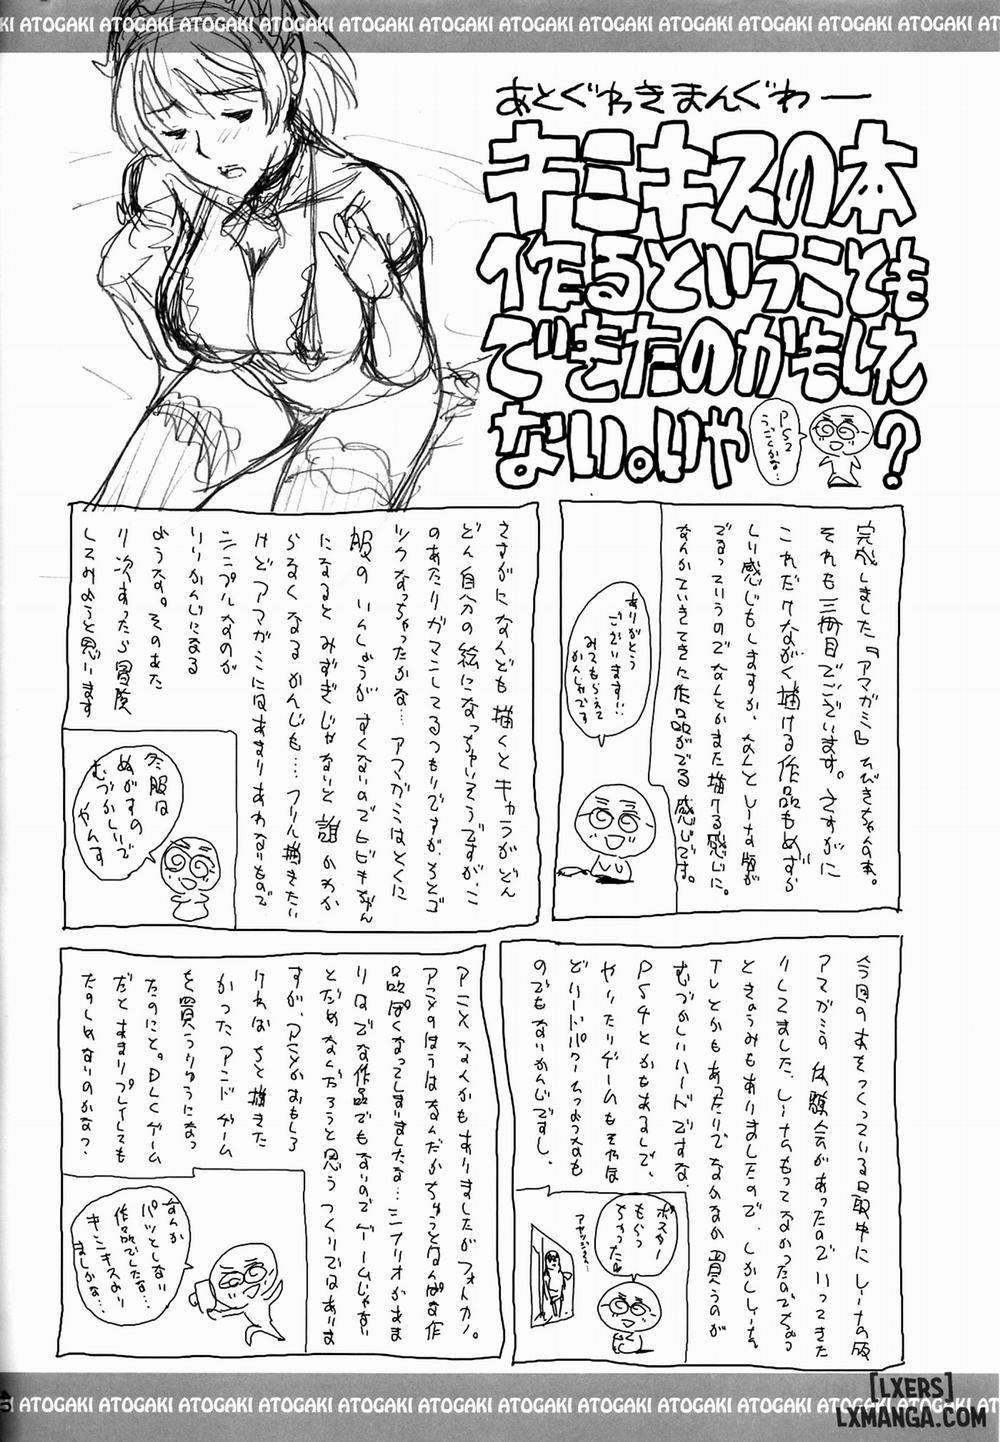 KI ATOGAKI ATOGAKI ATOGAKI ATOGAKI ATOGAKI ATOGAKI ATOGAKI ATOGAKI ATOGAKI ATOGAKI ATOGAKI
あとぐゎきまんぐゎー
キミキスの本
作るということも
できたのかもしれ
ない。いや
PS2
うごくかな…
?
完成しました『アマガミ』ひびきちゃん本。
それも三冊目でございます。さすがに
これだけながく描ける作品もめずら
しい感じもしますが、なんとしーな版が
でるっていうのでなんとかまた描ける感じに。
なんかていきてきに作品がでる感じです。
ありがとう
ございます!!
みてもらえて
かんしゃです
さすがになんども描くとキャラがどん
どん自分の絵になっちゃいそうですが、こ
のあたりガマンしてるつもりですが、そとで
ツクなっちゃったかな…アマガミはとくに
服のいしょうがすくないのでヒビキちゃん
になるとみずぎじゃないと誰かわか
らなくなるかんじも…フリル描きたい
けどアマガミにはあまりあわないもので
シンプルなのが
いいかんじになる
ような。そのあた
り次あったら冒険
してみようと思います
冬服は
ぬがすの
むづかしいで
やんす
今回の本をつくっている最中にしーなの版
アマガミの体験会があったのでいってきた
りしてました、しーなもってなかったのでちょっ
ときょうみもありましたので、しかししーな
TVとかもあったりでなかなか買うのが
むづかしいハードですな
PS4とかもあるしで、
やったりゲームもそやほ
どハードパワーつようなも
のでもないかんじですし、
ポスター
もらっ
ちゃった
アニメなんかもありましたがフォトカノ。
アニメのほうはなんだかちょっとなんぱな作
品ぽくなってしまいましたな…シナリオがあま
りはでな作品でもないのでゲームじゃない
とだめなんだろうと思うつくりではありま
すが、アニメがおもしろ
ければもっと描きた
かったアンドゲーム
を買うりゆうになっ
たのにと。DLCゲーム
だとあまりプレイしても
たのしめないのかな?
なんか
パッとしない
作品でしたな…
キミキスより
ましかな…
ATOGAKI ATOGAKI ATOGAKI ATOGAKI ATOGAKI ATOGAKI ATOGAKI ATOGAKI ATOGAKI ATOGAKI
[LXERS]
LXMANGA.COM